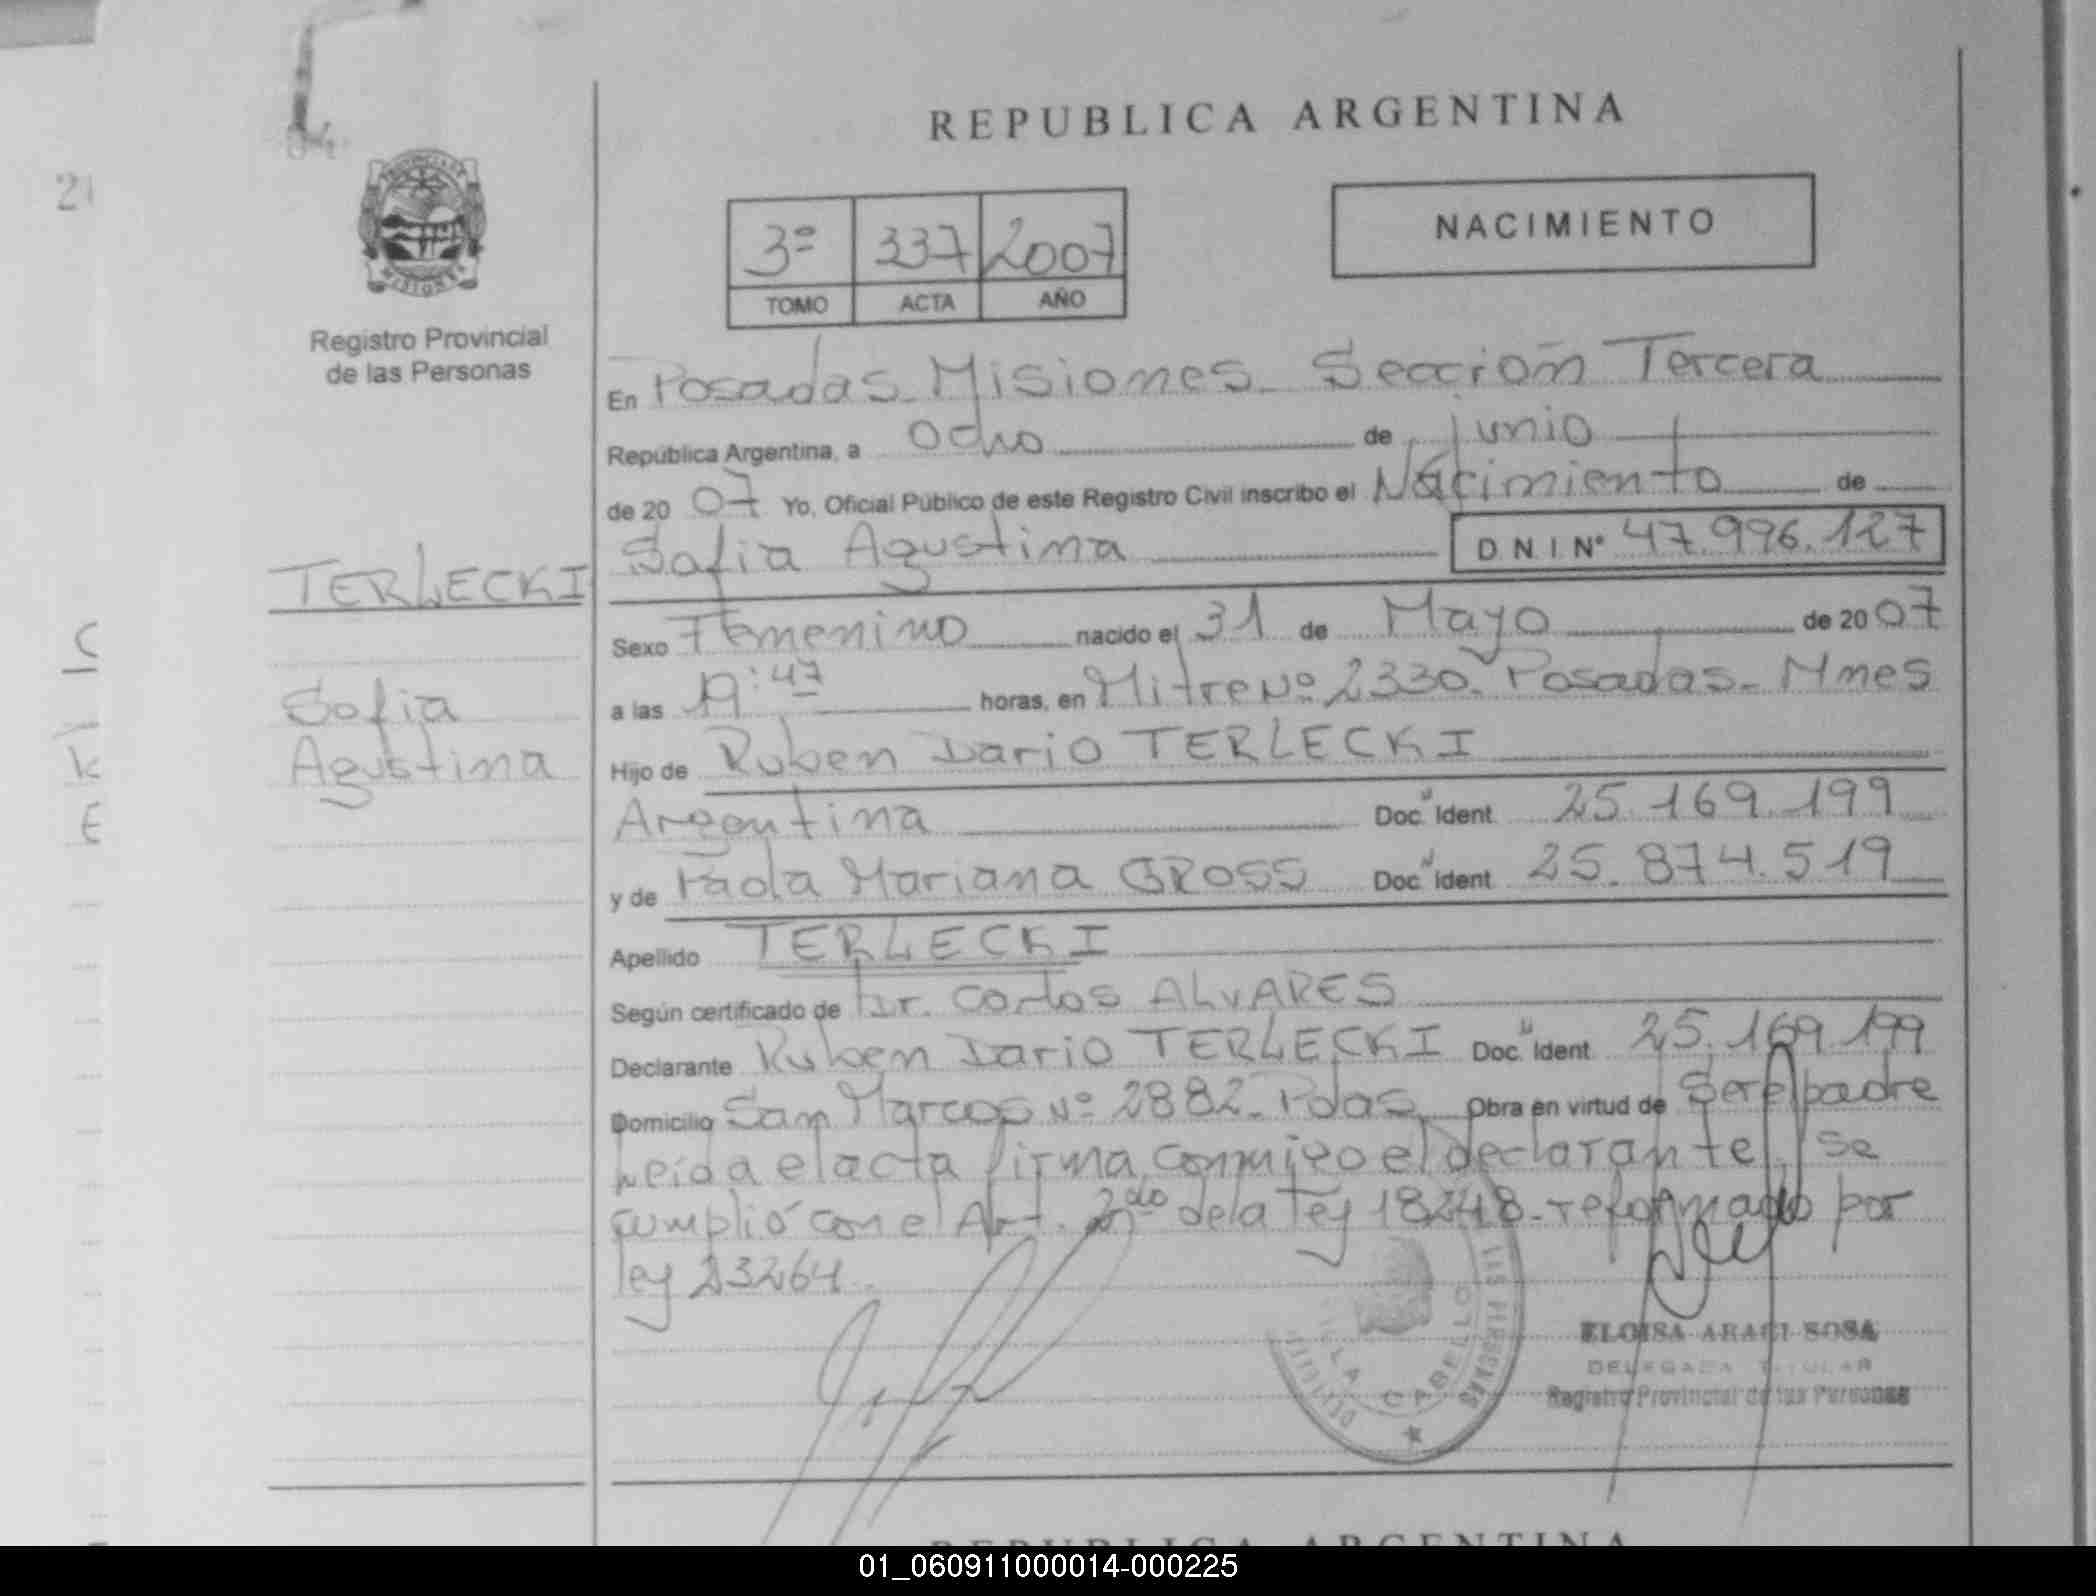 REPUBLICA ARGENTINA
PROVINCIA DE
MISIONES
Registro Provincial
de las Personas
3º 337 2007
TOMO ACTA AÑO
NACIMIENTO
En Posadas Misiones Sección Tercera
República Argentina, a Ocho de junio
de 2007 Yo, Oficial Público de este Registro Civil inscribo el Nacimiento de
Sofia Agustina D N I Nº 47.996.127
TERLECKI
Sofia
Agustina
Sexo Femenino nacido el 31 de Mayo de 2007
a las 19:47 horas, en Mitre Nº 2330 Posadas - Mnes
Hijo de Ruben Dario TERLECKI
Argentina Doc. Ident. 25.169.199
y de Paola Mariana GROSS Doc. Ident. 25.874.519
Apellido TERLECKI
Según certificado de Dr. Carlos ALVARES
Declarante Ruben Dario TERLECKI Doc. Ident. 25.169.199
Domicilio San Marcos Nº 2882 - Pdas Obra en virtud de Ser el padre
Leída el acta firma conmigo el declarante, se
cumplió con el Art. 2do de la Ley 18248 - reformado por
ley 23264.
VILLA CABELLO
LAS PERSONAS
ELOISA ARACI SOSA
DELEGADA TITULAR
Registro Provincial de las Personas
REPUBLICA ARGENTINA
01_060911000014-000225